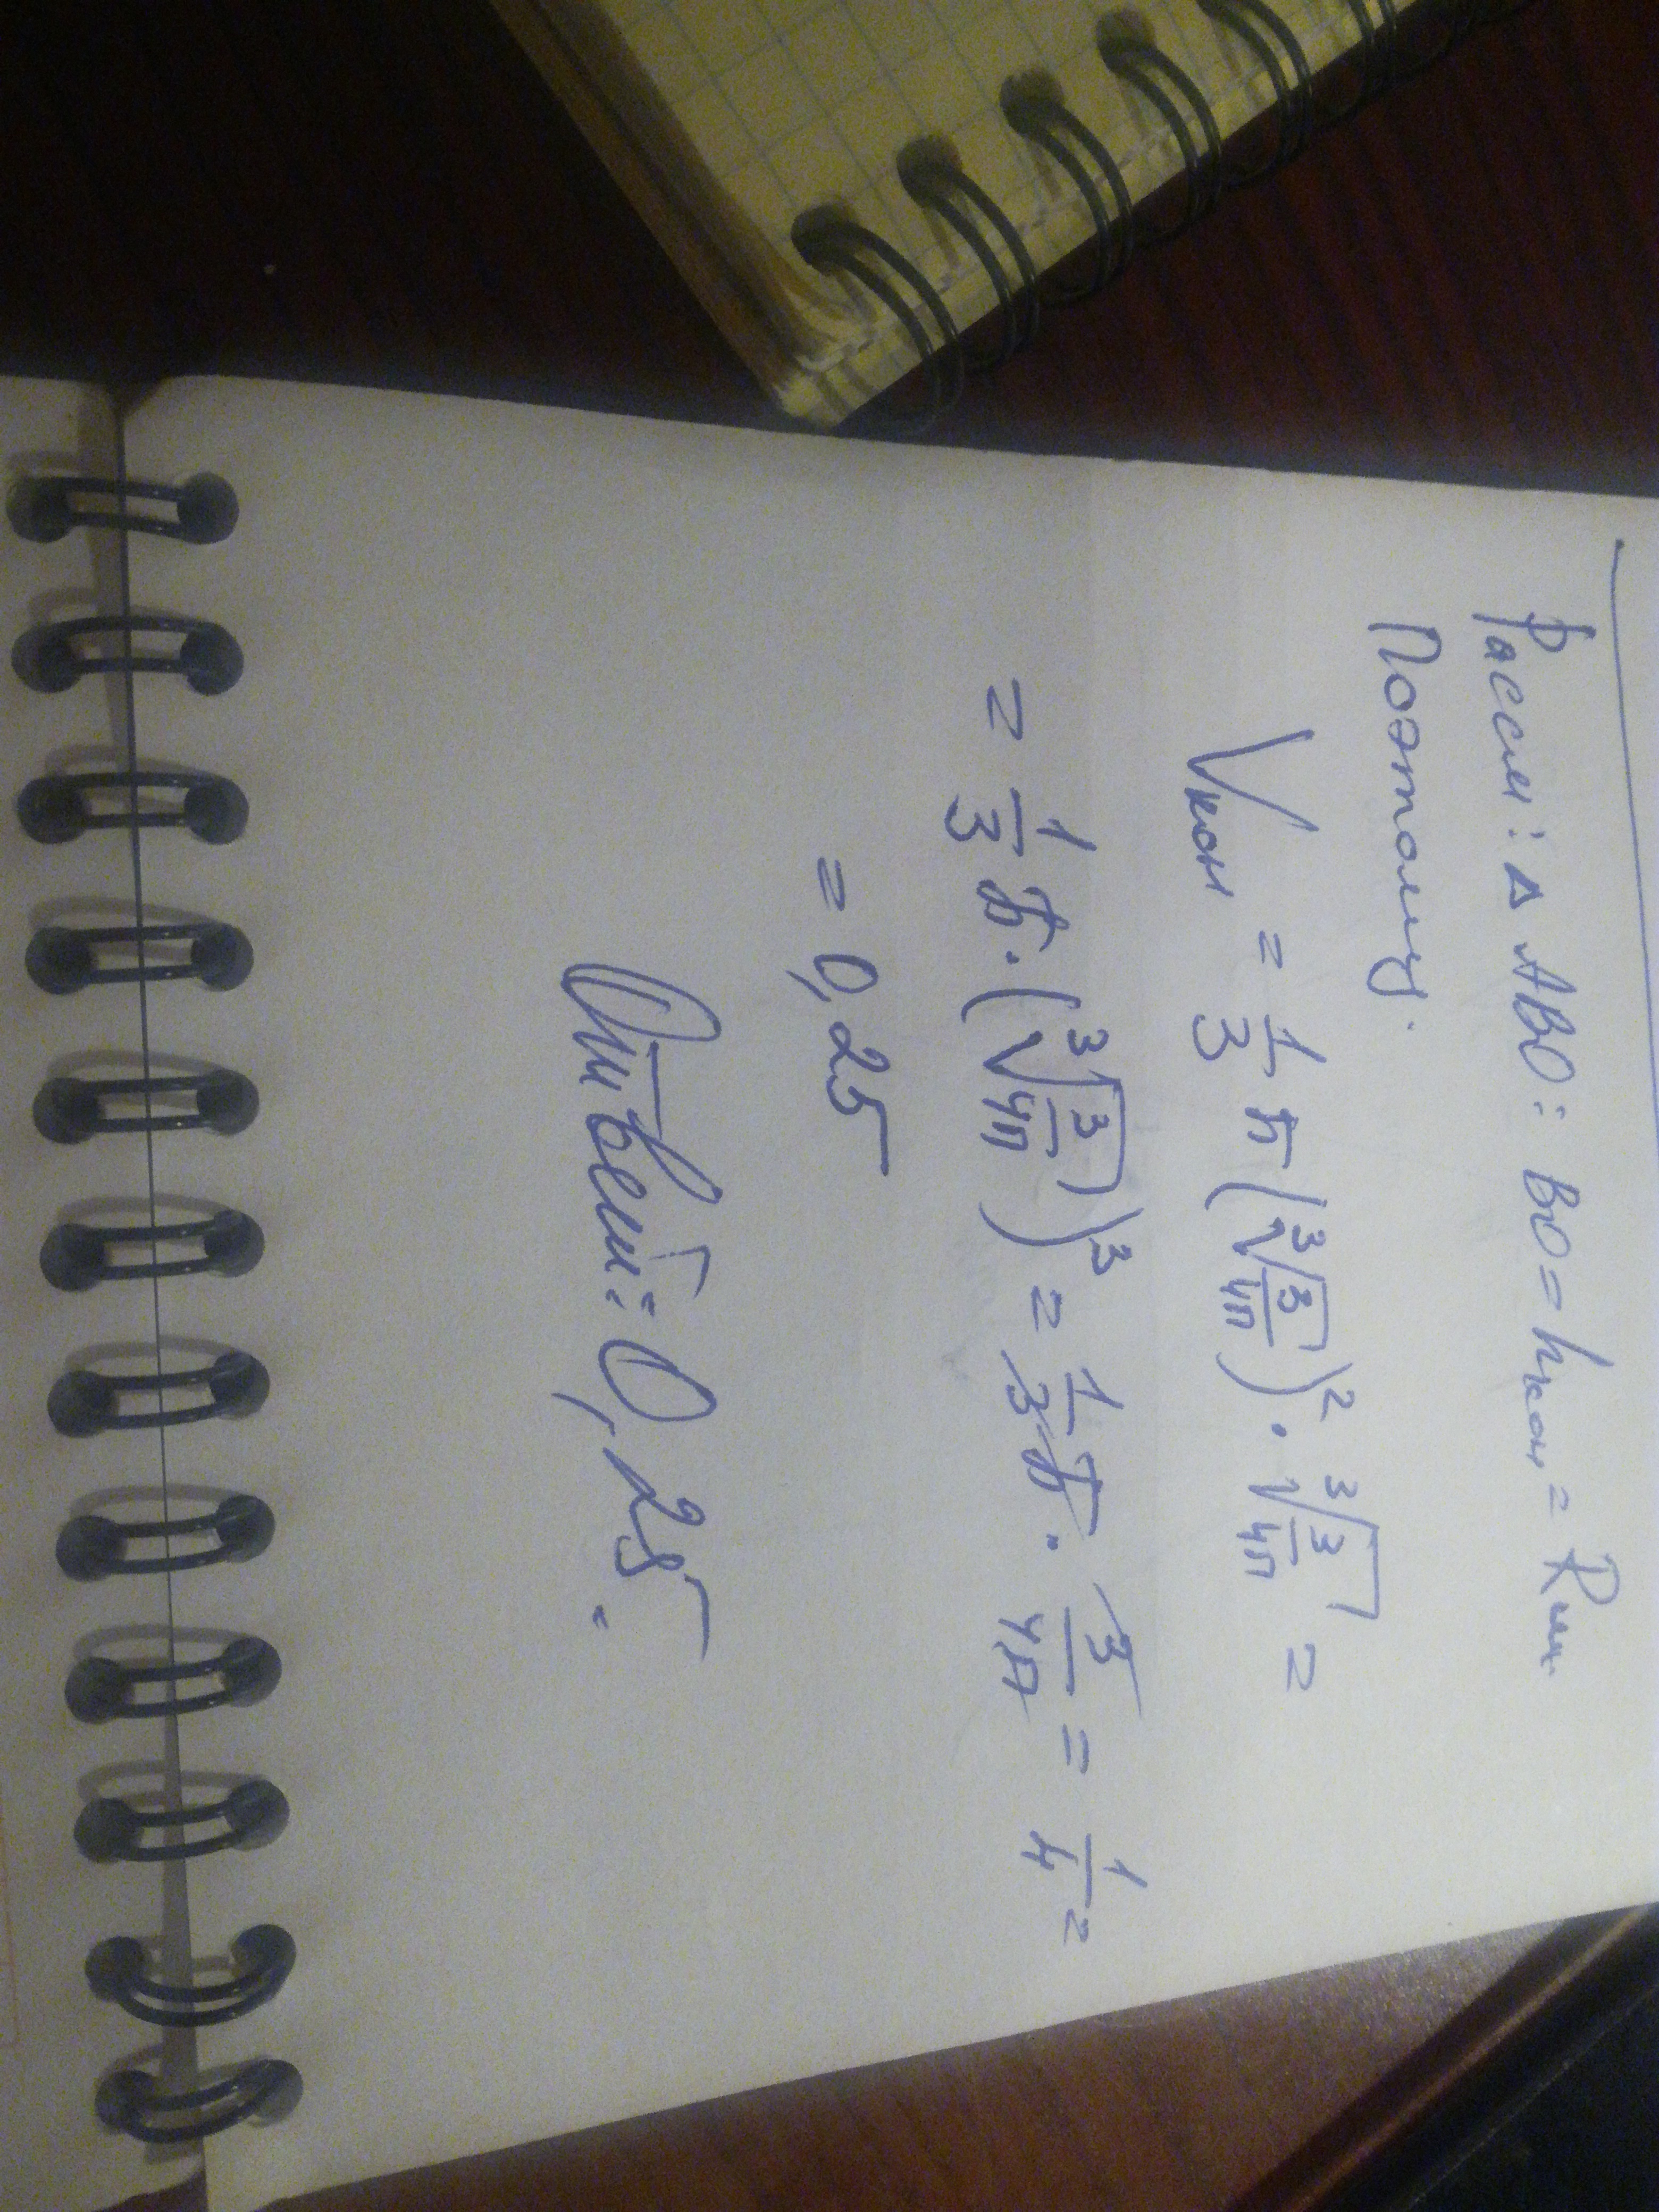 Рассм: △ ABO: BO = hкон = Rшн.
Поэтому:
Vкон = 1/3 π (∛(3/4π))² · ∛(3/4π) =
= 1/3 π · (∛(3/4π))³ = 1/3 π · 3/4π = 1/4 =
= 0,25
Ответ: 0,25.